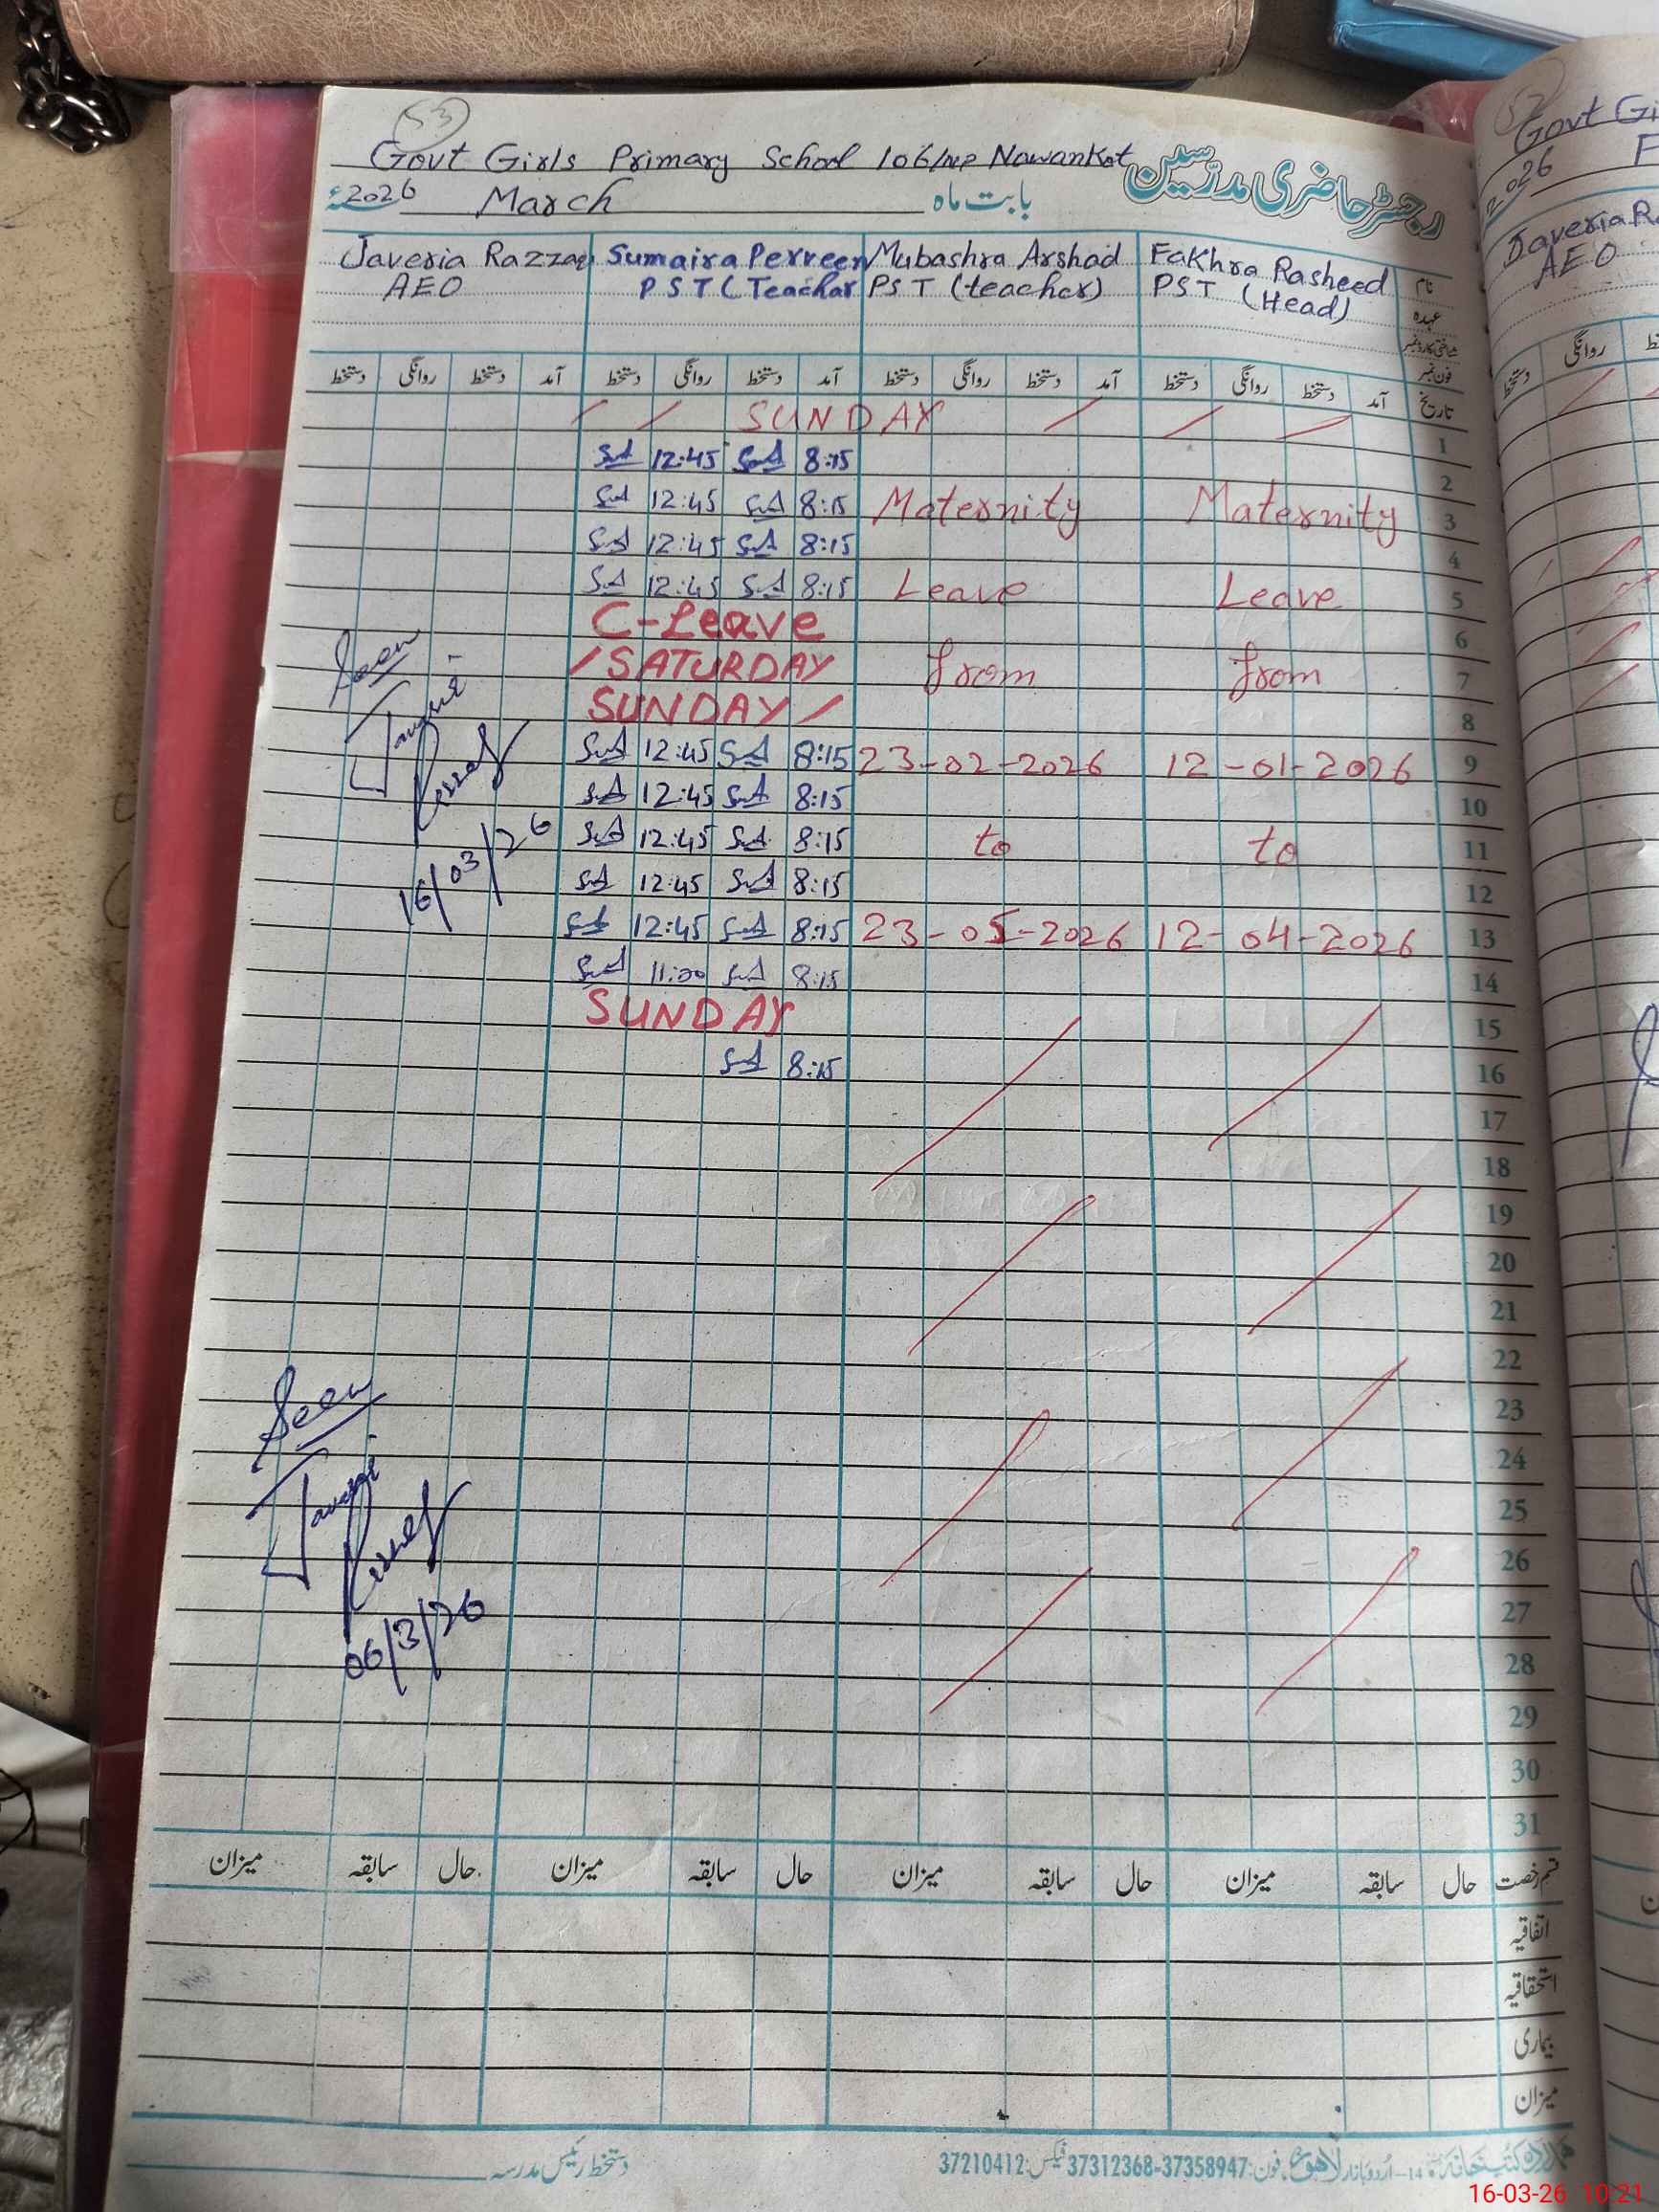 53
Govt Girls Primary School 106/NP Nawankot
رجسٹر حاضری مدرسین
2026ء March بابت ماہ
Javeria Razzaq
AEO
Sumaira Perveen
PST (Teachar
Mubashra Arshad
PST (teacher)
Fakhra Rasheed
PST (Head)
نام
عہدہ
شناختی کارڈ نمبر
فون نمبر
تاریخ
آمد دستخط روانگی دستخط آمد دستخط روانگی دستخط آمد دستخط روانگی دستخط آمد دستخط روانگی دستخط
SUNDAY 1
12:45 8:15 2
12:45 8:15 Maternity Maternity 3
12:45 8:15 4
12:45 8:15 Leave Leave 5
C-Leave 6
SATURDAY from from 7
SUNDAY 8
12:45 8:15 23-02-2026 12-01-2026 9
12:45 8:15 10
12:45 8:15 to to 11
12:45 8:15 12
12:45 8:15 23-05-2026 12-04-2026 13
11:00 8:15 14
SUNDAY 15
8:15 16
17
18
19
20
21
22
23
24
25
26
27
28
29
30
31
Seen
16/03/26
Seen
06/3/26
قسم رخصت حال سابقہ میزان حال سابقہ میزان حال سابقہ میزان حال سابقہ میزان
اتفاقیہ
استحقاقیہ
بیماری
میزان
دستخط رئیس مدرسہ
14-اردو بازار لاہور فون: 37312368-37358947 فیکس: 37210412
52
Govt Gi
2026
Javeria R
AEO
روانگی
دستخط
16-03-26 10:21